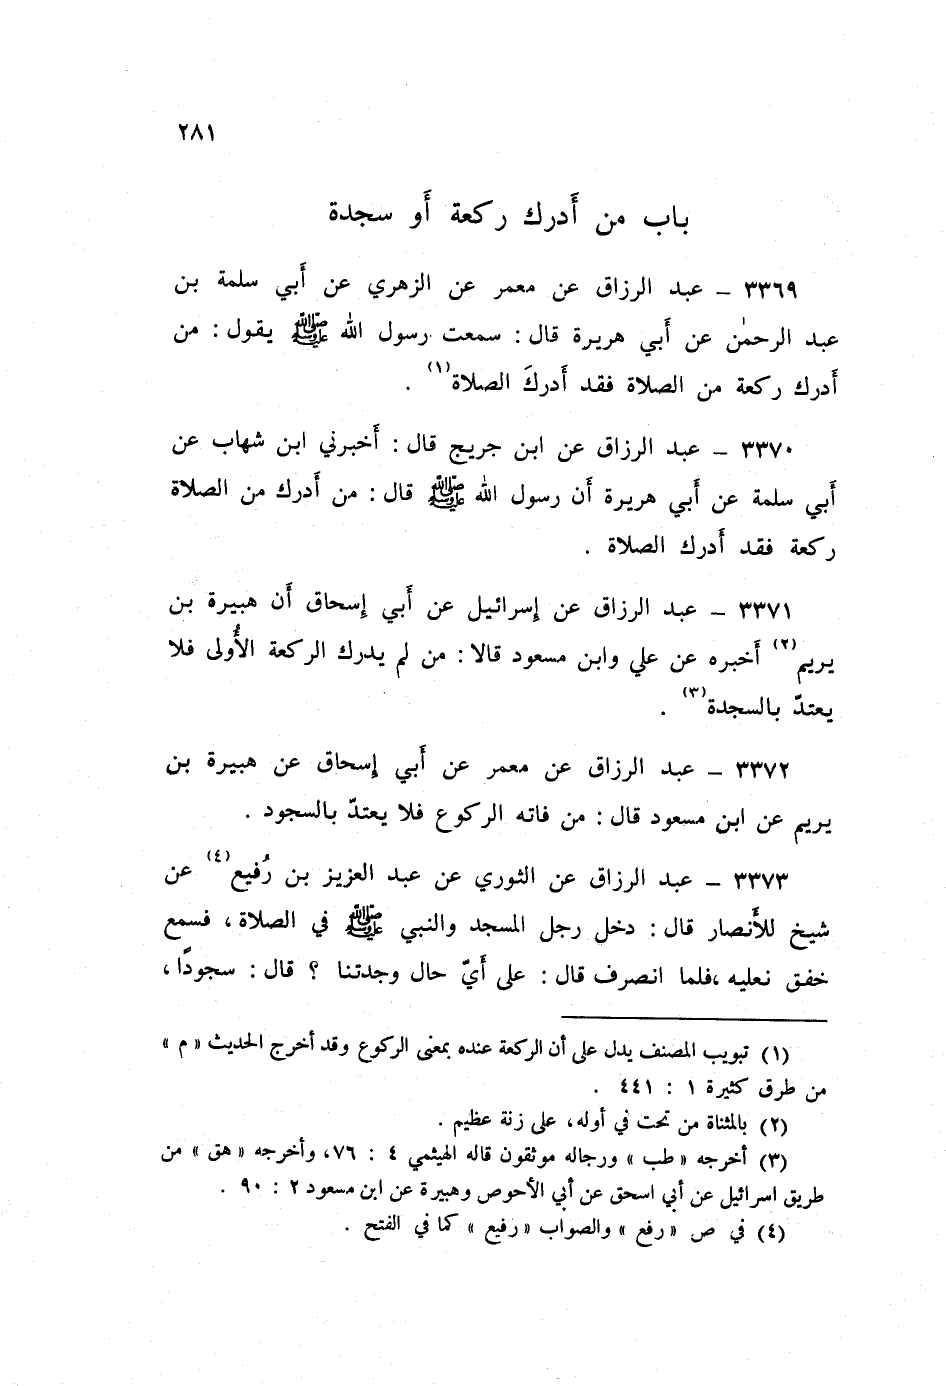 ٢٨١
باب من أَدرك ركعة أَو سجدة
٣٣٦٩ – عبد الرزاق عن معمر عن الزهري عن أَبي سلمة بن
عبد الرحمٰن عن أَبي هريرة قال : سمعت رسول الله ﷺ يقول : من
أَدرك ركعة من الصلاة فقد أَدركَ الصلاة(١) .
٣٣٧٠ – عبد الرزاق عن ابن جريج قال : أَخبرني ابن شهاب عن
أَبي سلمة عن أَبي هريرة أن رسول الله ﷺ قال : من أَدرك من الصلاة
ركعة فقد أَدرك الصلاة .
٣٣٧١ – عبد الرزاق عن إسرائيل عن أَبي إسحاق أَن هبيرة بن
يريم(٢) أَخبره عن علي وابن مسعود قالا : من لم يدرك الركعة الأُولى فلا
يعتدّ بالسجدة(٣) .
٣٣٧٢ – عبد الرزاق عن معمر عن أَبي إسحاق عن هبيرة بن
يريم عن ابن مسعود قال : من فاته الركوع فلا يعتدّ بالسجود .
٣٣٧٣ – عبد الرزاق عن الثوري عن عبد العزيز بن رُفيع(٤) عن
شيخ للأَنصار قال : دخل رجل المسجد والنبي ﷺ في الصلاة ، فسمع
خفق نعليه ،فلما انصرف قال : على أَيّ حال وجدتنا ؟ قال : سجودًا ،
(١) تبويب المصنف يدل على أن الركعة عنده بمعنى الركوع وقد أخرج الحديث « م »
من طرق كثيرة ١ : ٤٤١ .
(٢) بالمثناة من تحت في أوله، على زنة عظيم .
(٣) أخرجه « طب » ورجاله موثقون قاله الهيثمي ٤ : ٧٦، وأخرجه « هق » من
طريق اسرائيل عن أبي اسحق عن أبي الأحوص وهبيرة عن ابن مسعود ٢ : ٩٠ .
(٤) في ص « رفع » والصواب « رفيع » كما في الفتح .